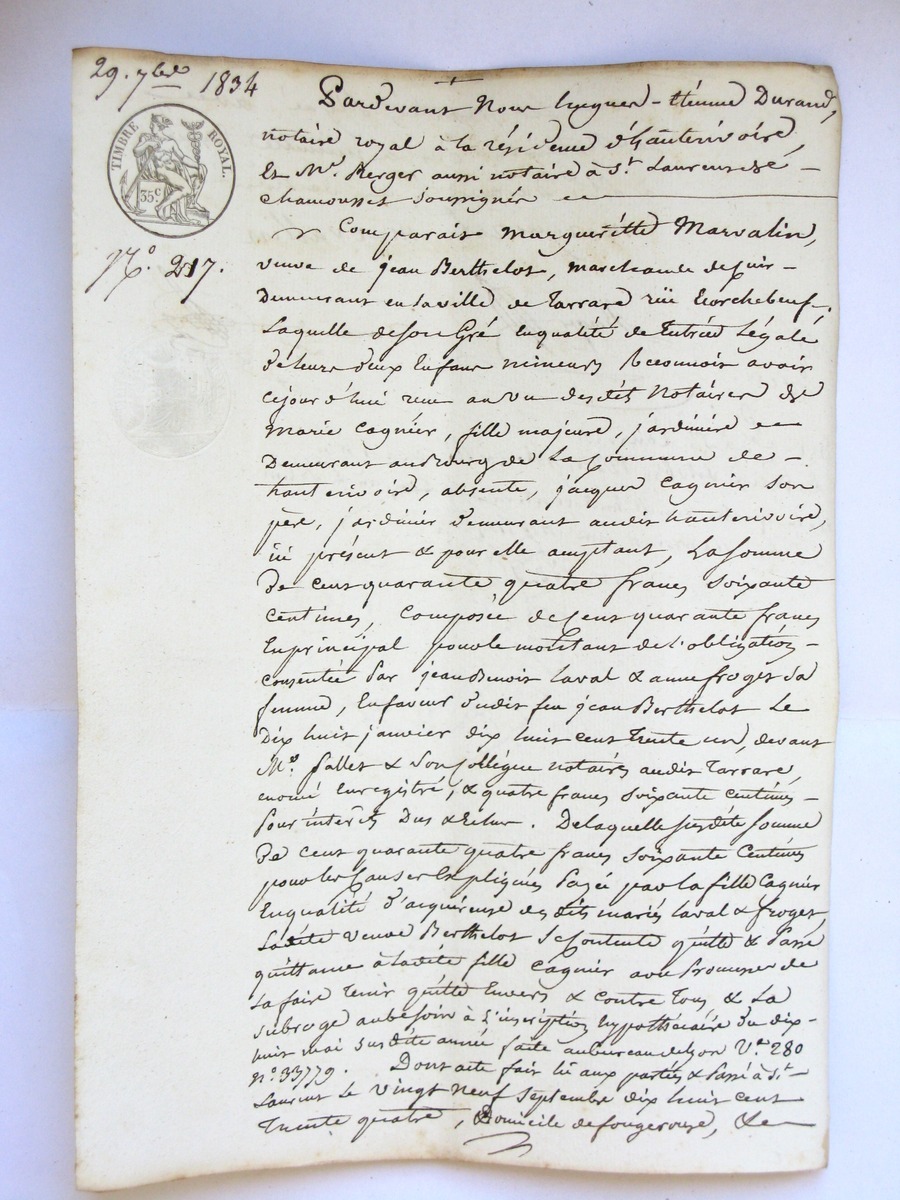 29. 7bre 1834
TIMBRE ROYAL.
35c
No. 217.
Pardevant Nous hugues-Etienne Durand,
notaire royal à la résidence d'hauterivoire,
Et Me. Berger aussi notaire à St. Laurent de
chamousset soussignés
Comparait Margueritte Marvalin,
veuve de jean Berthelot, marchande de cuir
Demeurant en la ville de Tarrare rüe Ecorchebeuf,
Laquelle de son Gré en qualité de Tutrice Légale
de leurs deux Enfans mineurs Reconnoit avoir
cejourd'hui reçu au vu des dits Notaires de
Marie Cagnier, fille majeure, jardinière
Demeurant au Bourg de La Commune de
hauterivoire, absente, jacques Cagnier son
père, jardinier demeurant audit hauterivoire,
ici présent & pour elle acceptant, La somme
de cent quarante quatre francs soixante
centimes, Composée de Cent quarante francs
En principal pour le montant de l'obligation
consentie par jean Benoit Laval & anne froget sa
femme, En faveur dudit feu jean Berthelot Le
Dix huit janvier dix huit cent Trente un, devant
Me. fallet & son Collègue notaires audit Tarrare,
Enregistré, & quatre francs soixante centimes
Pour intérêts Dus & Echus. De laquelle susdite somme
De cent quarante quatre francs soixante Centimes
pour les Causes Expliquées Payée par la fille Cagnier
En qualité d'acquéreuse des dits mariés Laval & froget,
Ladite veuve Berthelot se Contente quitte & Passe
quittance à Ladite fille Cagnier avec Promesse de
La faire Tenir quitte Envers & contre Tous & La
subroge au besoin à L'inscription hypothécaire du dix
huit mai susdite année faite au bureau de Lyon Ve. 280
No. 33779. Dont acte fait lu aux parties & Passé à St.
Laurent Le vingt neuf septembre dix huit cent
Trente quatre, Domicile de fougerouse, &c